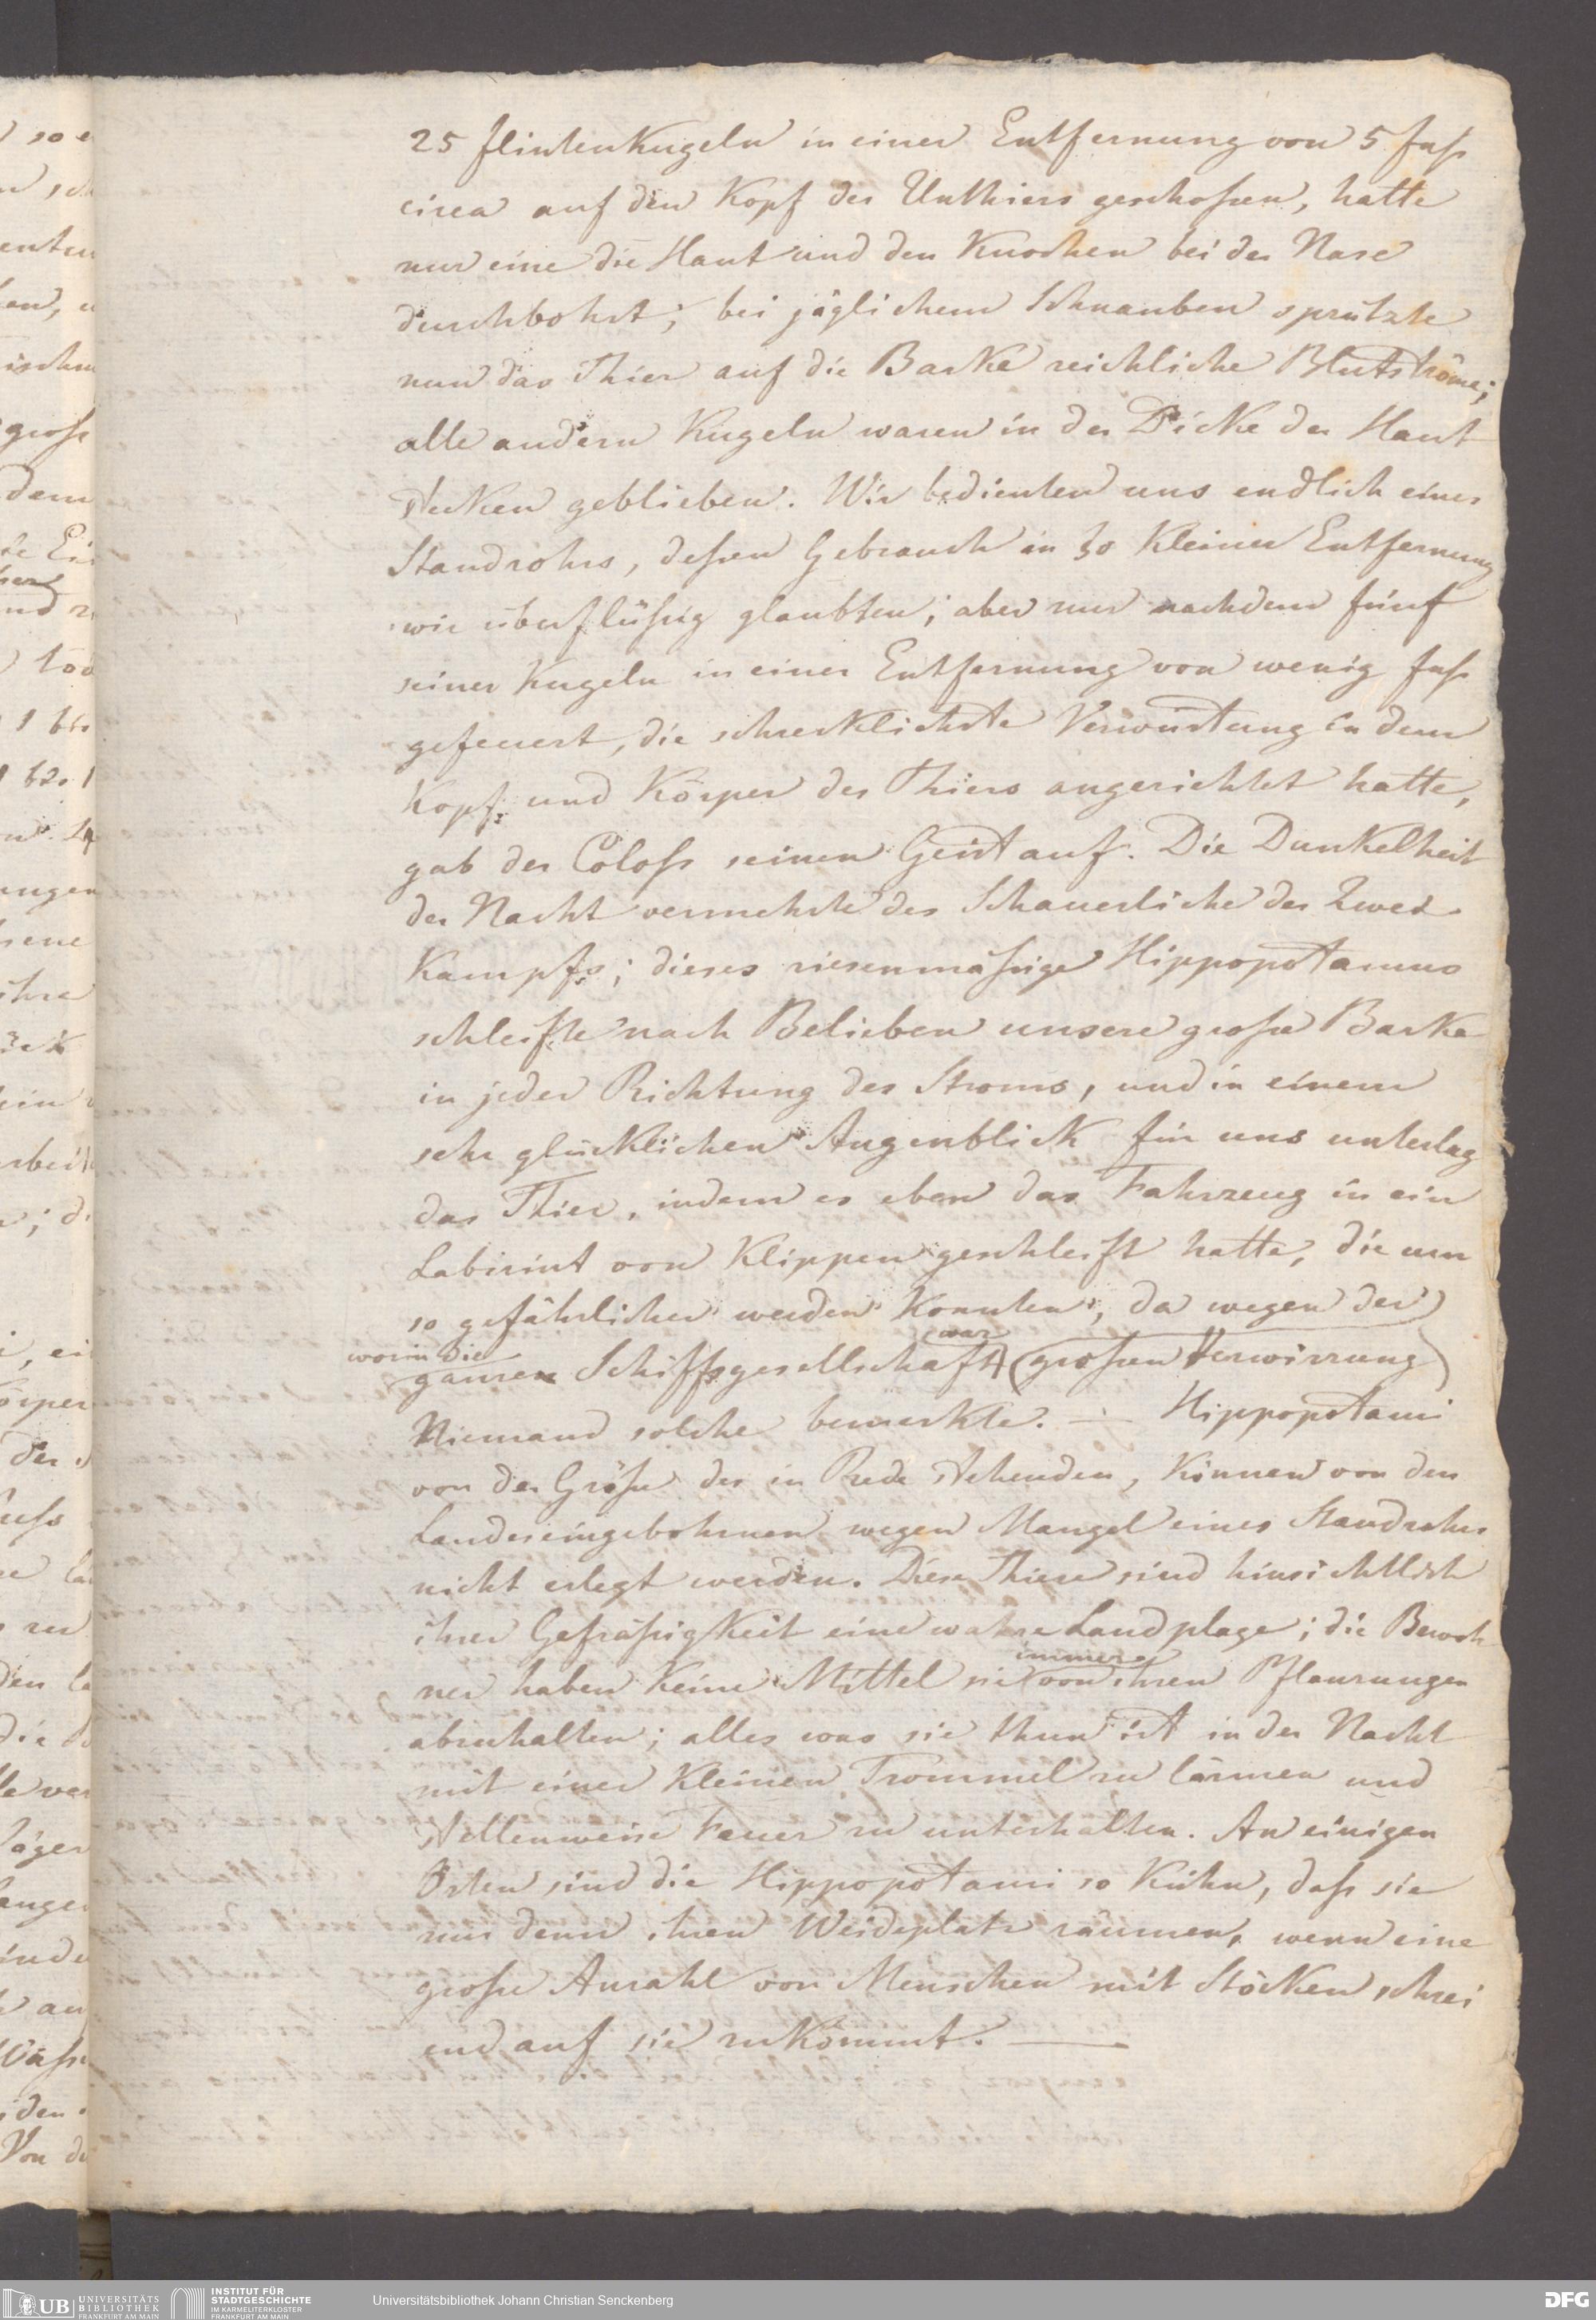 25 flintenkugeln in einer Entfernung von 5 fuſs
circa auf den Kopf des Unthiers geschoſsen, hatte
nur eine die Haut und den Knochen bei der Nase
durchbohrt; bei jäglichem Schnauben sprützte
nun das Thier auf die Barke reichliche Blutströme;
alle andern Kugeln waren in der Dicke der Haut
stecken geblieben. Wir bedienten uns endlich eines
Standrohrs, deſsen Gebrauch in so kleiner Entfernung
wir überflüſsig glaubten; aber nur nachdem fünf
seiner Kugeln in einer Entfernung von wenig fuſs
gefeuert, die schrecklichste Verwüstung in dem
Kopf und Körper des Thiers angerichtet hatte,
gab der Coloſs seinen Geist auf. Die Dunkelheit
der Nacht vermehrte das Schauerliche des Zwei-
kampfs; dieses riesenmäſsige Hippopotamus
schleifte nach Belieben unsere groſse Barke
in jeder Richtung des Stroms, und in einem
sehr glücklichen Augenblick für uns unterlag
das Thier, indem es eben das Fahrzeug in ein
Labirint von Klippen geschleift hatte, die um
so gefährlicher werden konnten, da wegen der
worin die war
ganzen Schiffsgesellschaft (groſsen Verwirrung)
Niemand solche bemerkte. — Hippopotami
von der Gröſse des in Rede stehenden, können von den
Landeseingebohrnen wegen Mangel eines Standrohrs
nicht erlegt werden. Diese Thiere sind hinsichtlich
ihrer Gefräſsigkeit eine wahre Landplage; die Bewoh
immer
ner haben keine Mittel sie von ihren Pflanzungen
abzuhalten; alles was sie thun ist in der Nacht
mit einer kleinen Trommel zu lärmen und
stellenweise Feuer zu unterhalten. An einigen
Orten sind die Hippopotami so kühn, daſs sie
nur dann ihren Weideplatz räumen, wenn eine
groſse Anzahl von Menschen mit Stöcken schrei
end auf sie zukömmt. —
UB UNIVERSITÄTS BIBLIOTHEK FRANKFURT AM MAIN
INSTITUT FÜR STADTGESCHICHTE IM KARMELITERKLOSTER FRANKFURT AM MAIN
Universitätsbibliothek Johann Christian Senckenberg
DFG